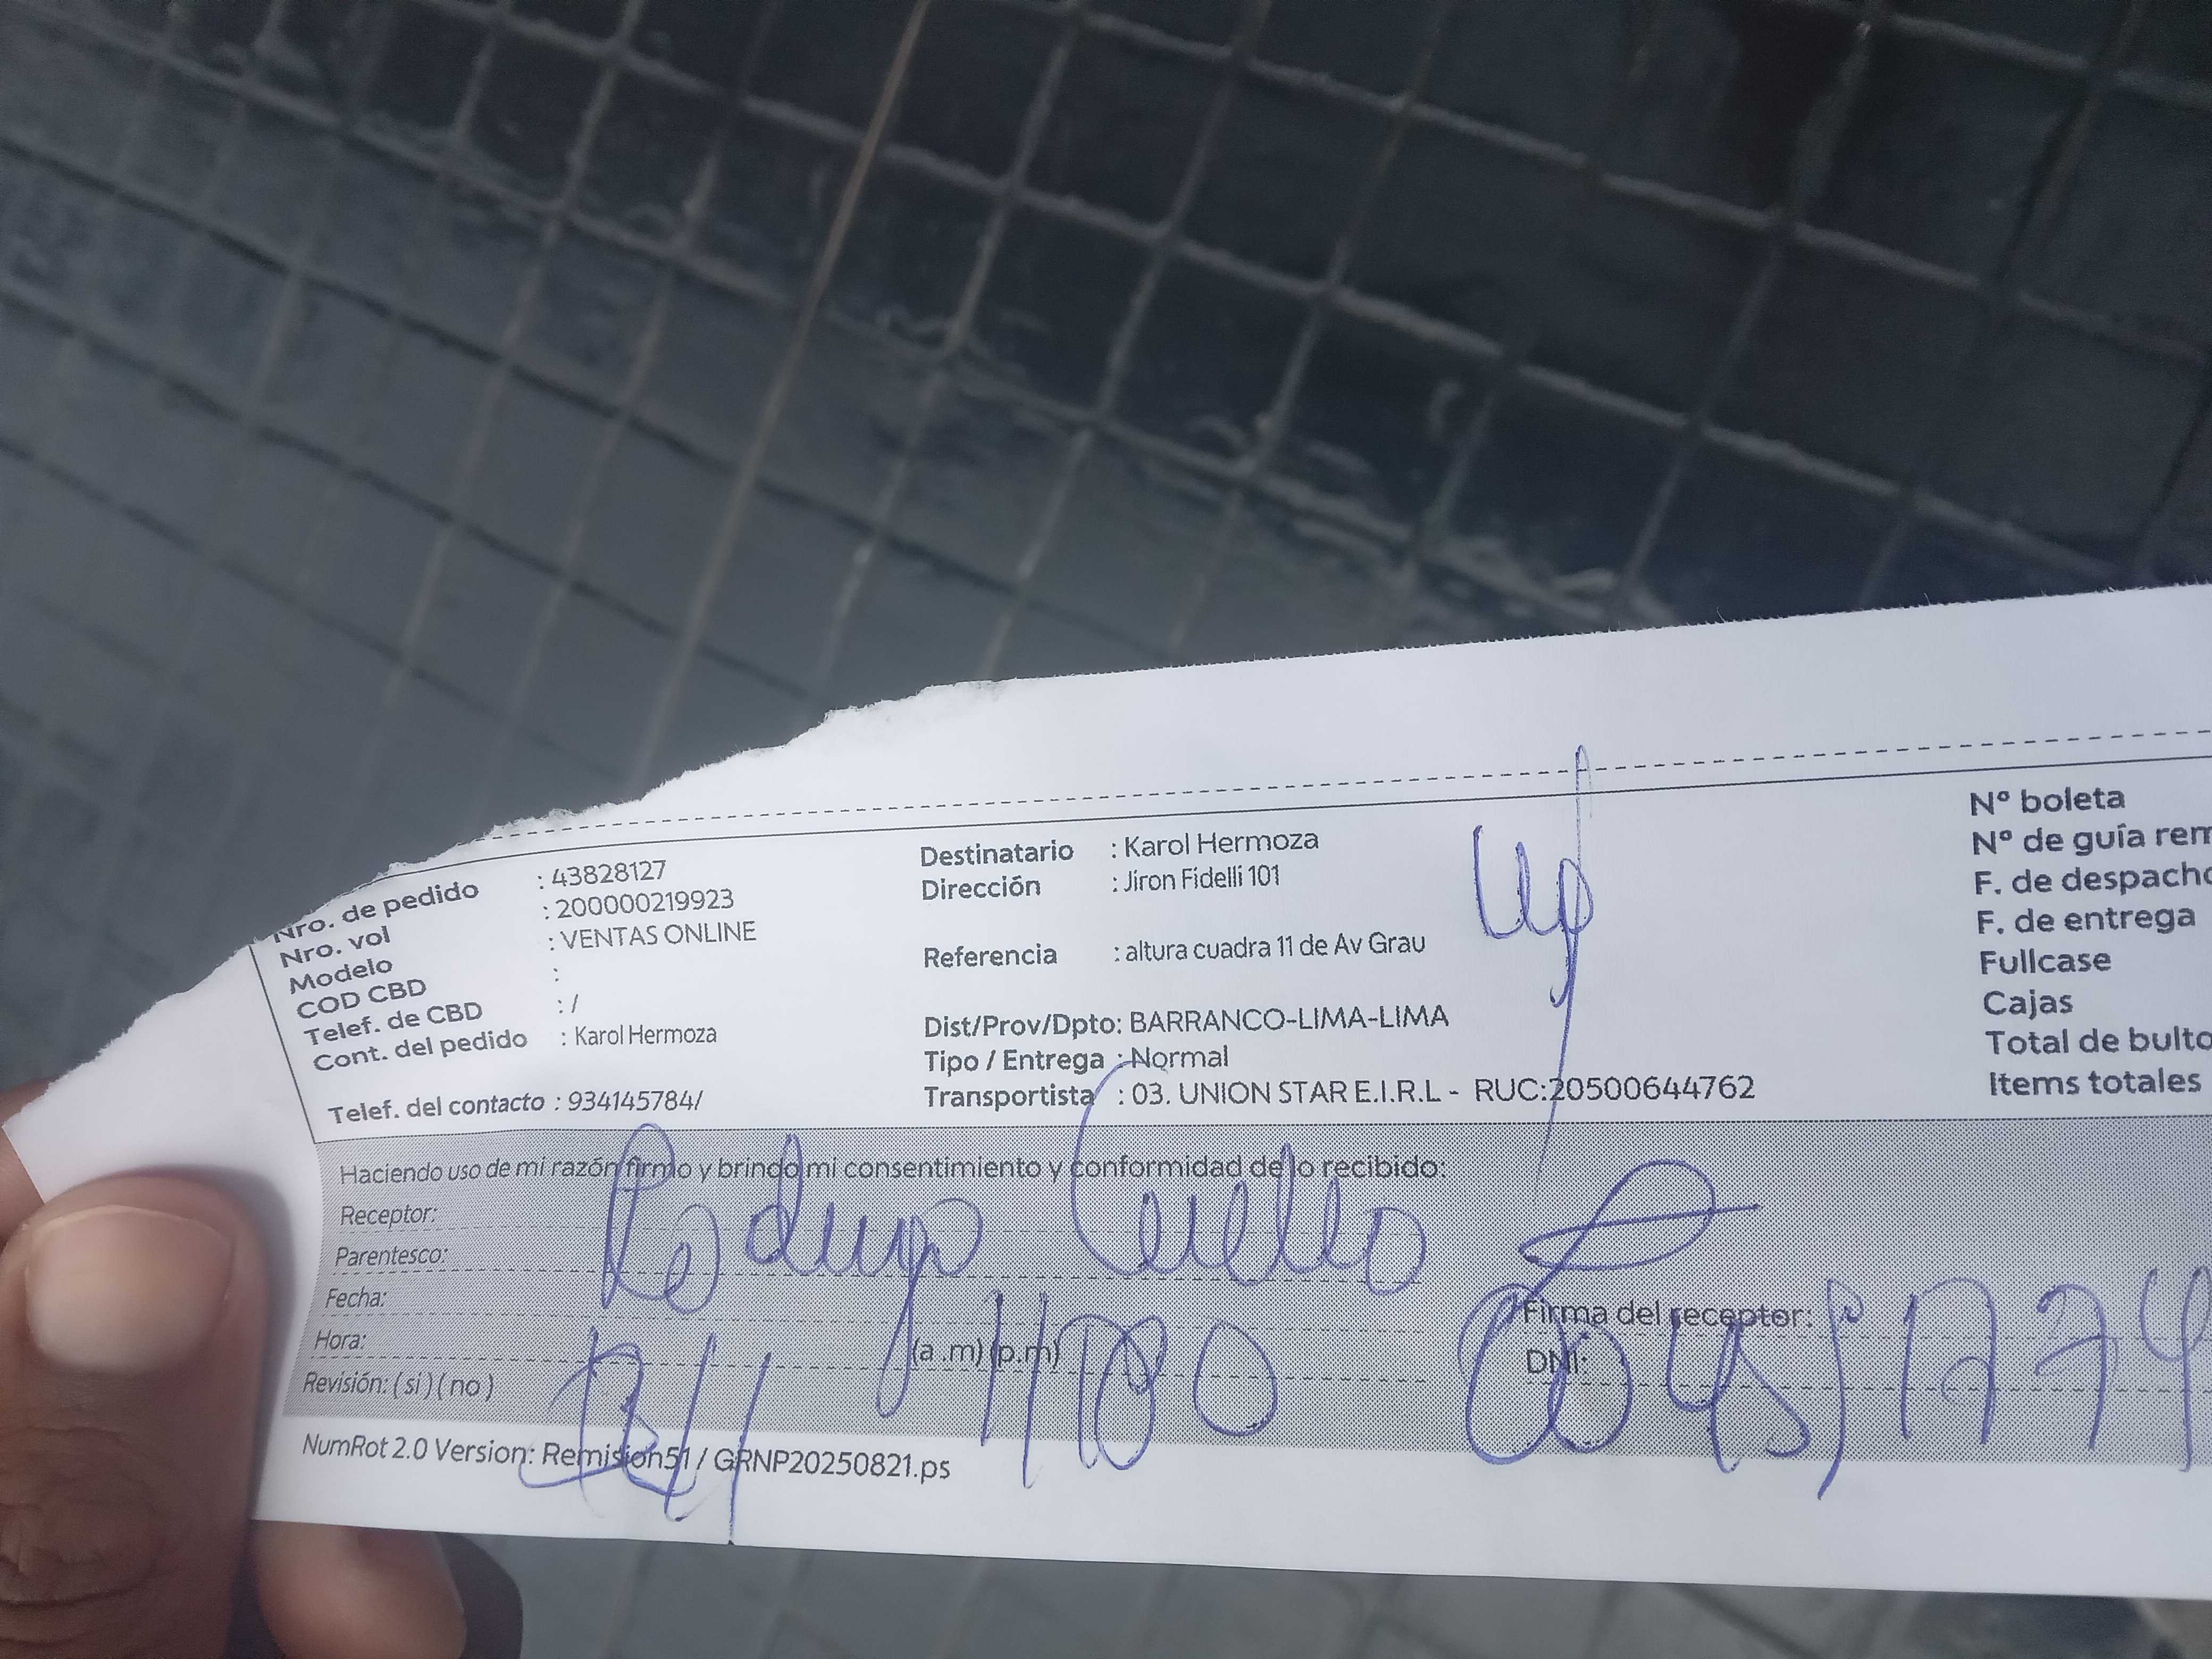 Nro. de pedido : 43828127
Nro. vol : 200000219923
Modelo : VENTAS ONLINE
COD CBD :
Telef. de CBD : /
Cont. del pedido : Karol Hermoza
Telef. del contacto : 934145784/
Destinatario : Karol Hermoza
Dirección : Jiron Fidelli 101
Referencia : altura cuadra 11 de Av Grau
Dist/Prov/Dpto: BARRANCO-LIMA-LIMA
Tipo / Entrega : Normal
Transportista : 03. UNION STAR E.I.R.L - RUC:20500644762
N° boleta
N° de guía rem
F. de despacho
F. de entrega
Fullcase
Cajas
Total de bulto
Items totales
Haciendo uso de mi razón firmo y brindo mi consentimiento y conformidad de lo recibido:
Receptor:
Parentesco:
Fecha:
Hora: (a .m) (p.m)
Revisión: ( si ) ( no )
Firma del receptor:
DNI:
NumRot 2.0 Version: Remision51 / GRNP20250821.ps